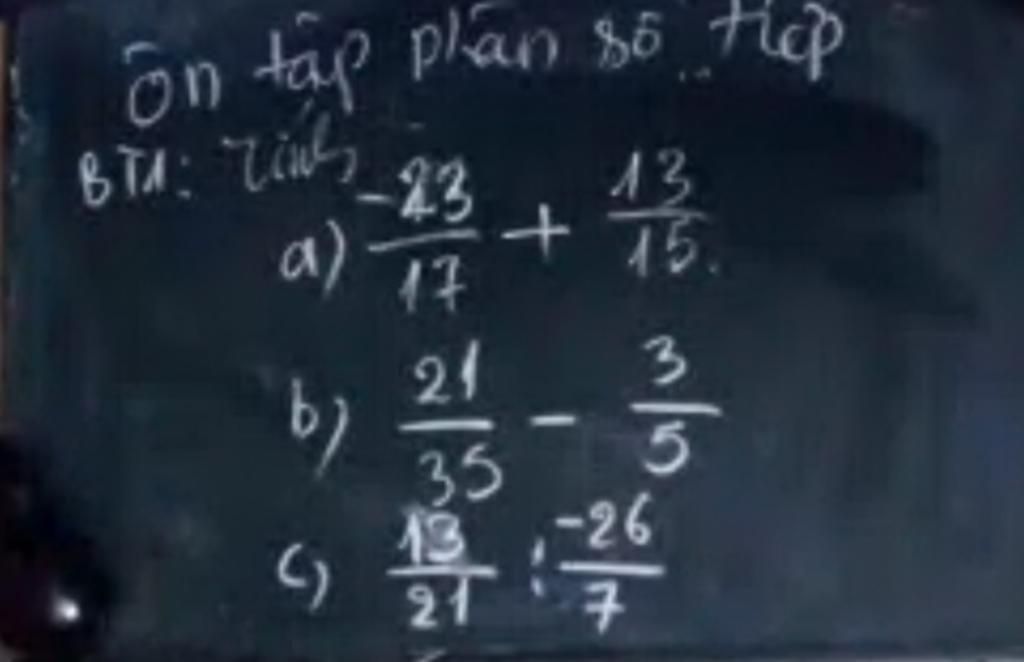 Ôn tập phân số tiếp
BT1: Tính
a) \frac{-23}{17} + \frac{13}{15}.
b) \frac{21}{35} - \frac{3}{5}
c) \frac{13}{21} : \frac{-26}{7}